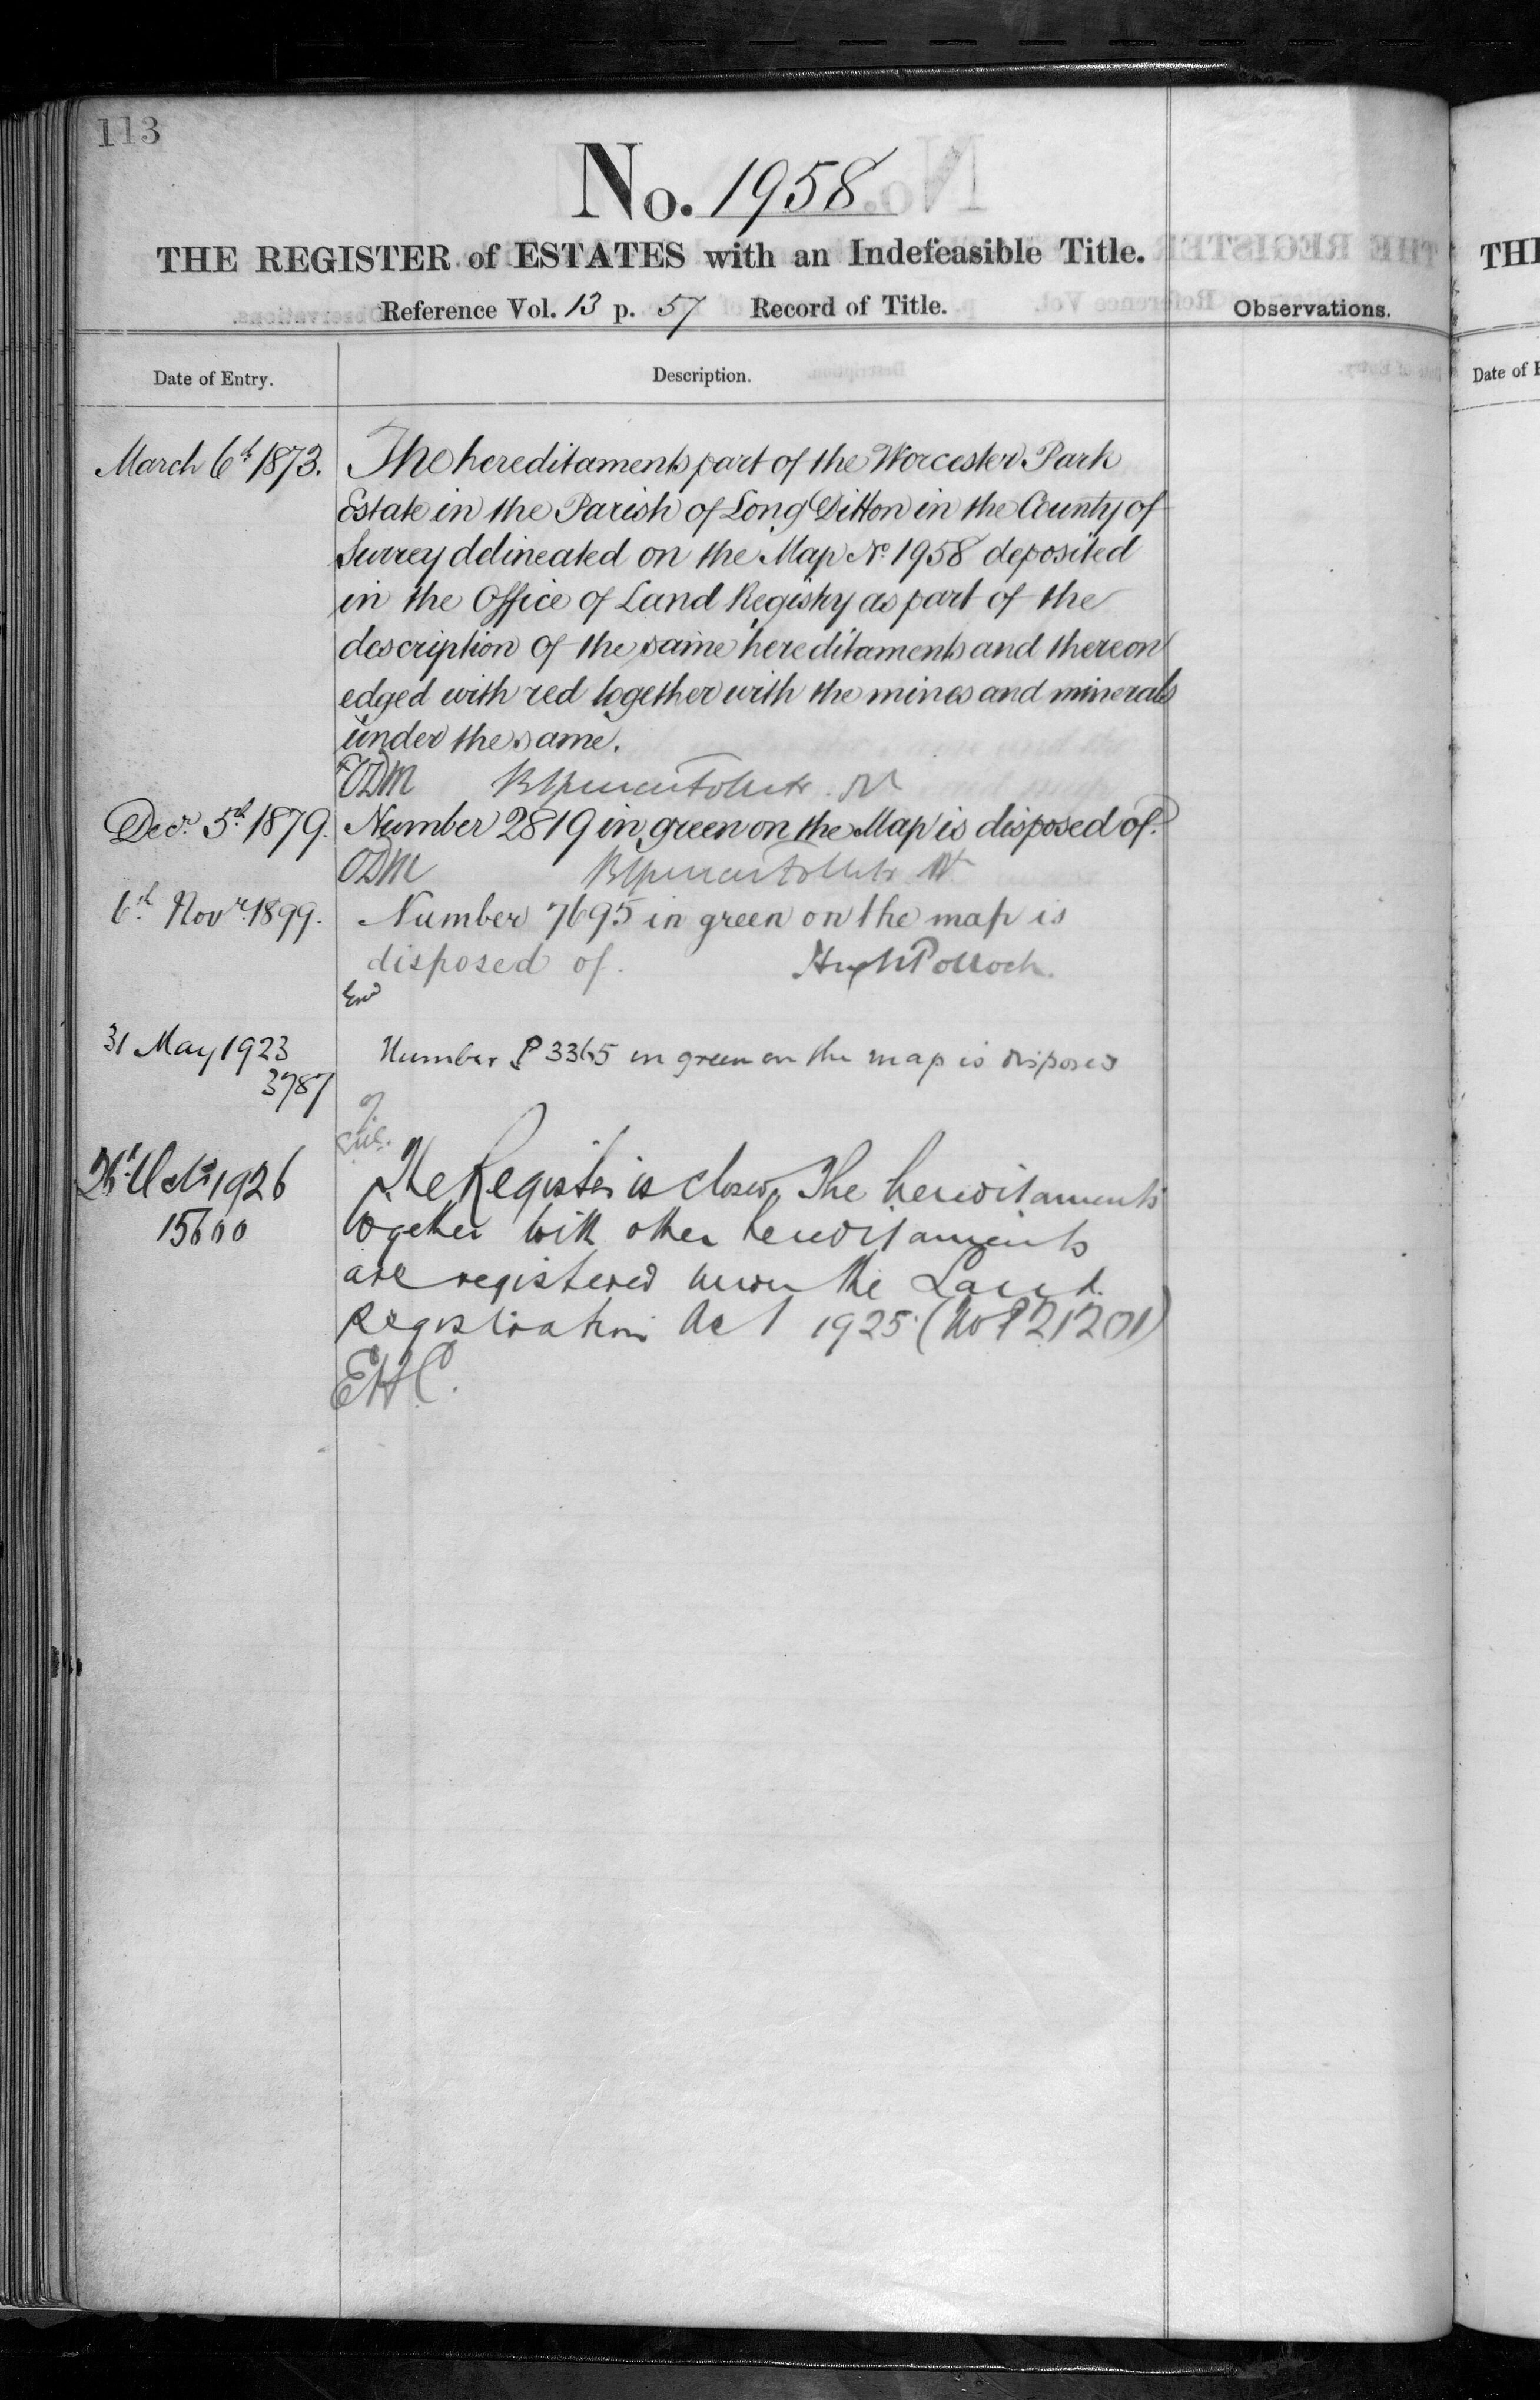 113
No. 1958
THE REGISTER of ESTATES with an Indefeasible Title.
Reference Vol. 13 p. 57 Record of Title.
Observations.
Date of Entry.
Description.
March 6th 1873.
The hereditaments part of the Worcester Park
Estate in the Parish of Long Ditton in the County of
Surrey delineated on the Map No. 1958 deposited
in the Office of Land Registry as part of the
description of the same hereditaments and thereon
edged with red together with the mines and minerals
under the same.
ODM
Decr. 5th 1879.
Number 2819 in green on the Map is disposed of.
ODM
6th Novr. 1899.
Number 7695 in green on the map is
disposed of. Hugh Pollock.
31 May 1923
3787
Number P 3365 in green on the map is disposed
of.
Octr 1926
15600
The Register is closed, The hereditaments
together with other hereditaments
are registered under the Land
Registration Act 1925 (No P21201)
EHC.
THE
Date of E